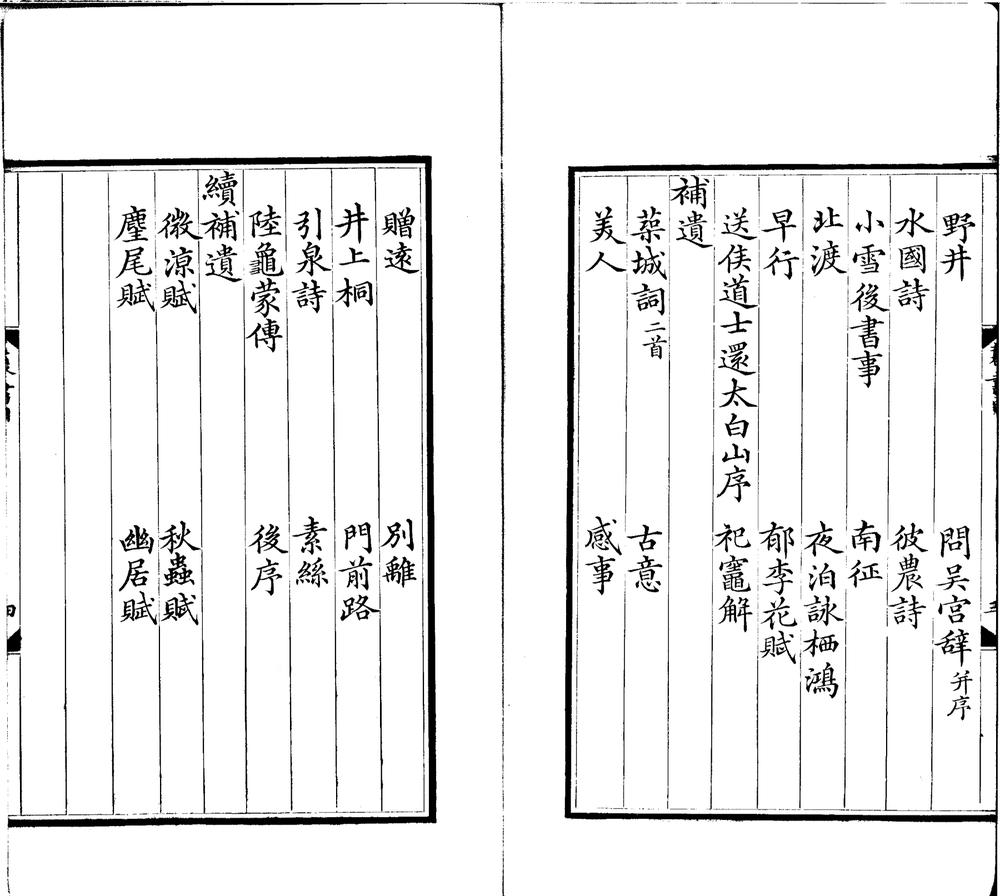 野井　問吴宫辞并序
水國詩　彼農詩
小雪後書事　南征
北渡　夜泊詠栖鴻
早行　郁李花賦
送侯道士還太白山序　祀竈解
補遺
築城詞二首　古意
美人　感事
贈遠　別離
井上桐　門前路
引泉詩　素絲
陸龜蒙傳　後序
續補遺
微涼賦　秋蟲賦
麈尾賦　幽居賦